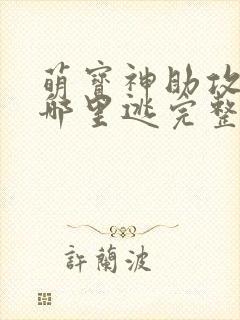 萌寶神助攻
哪里逃完整
許蘭波